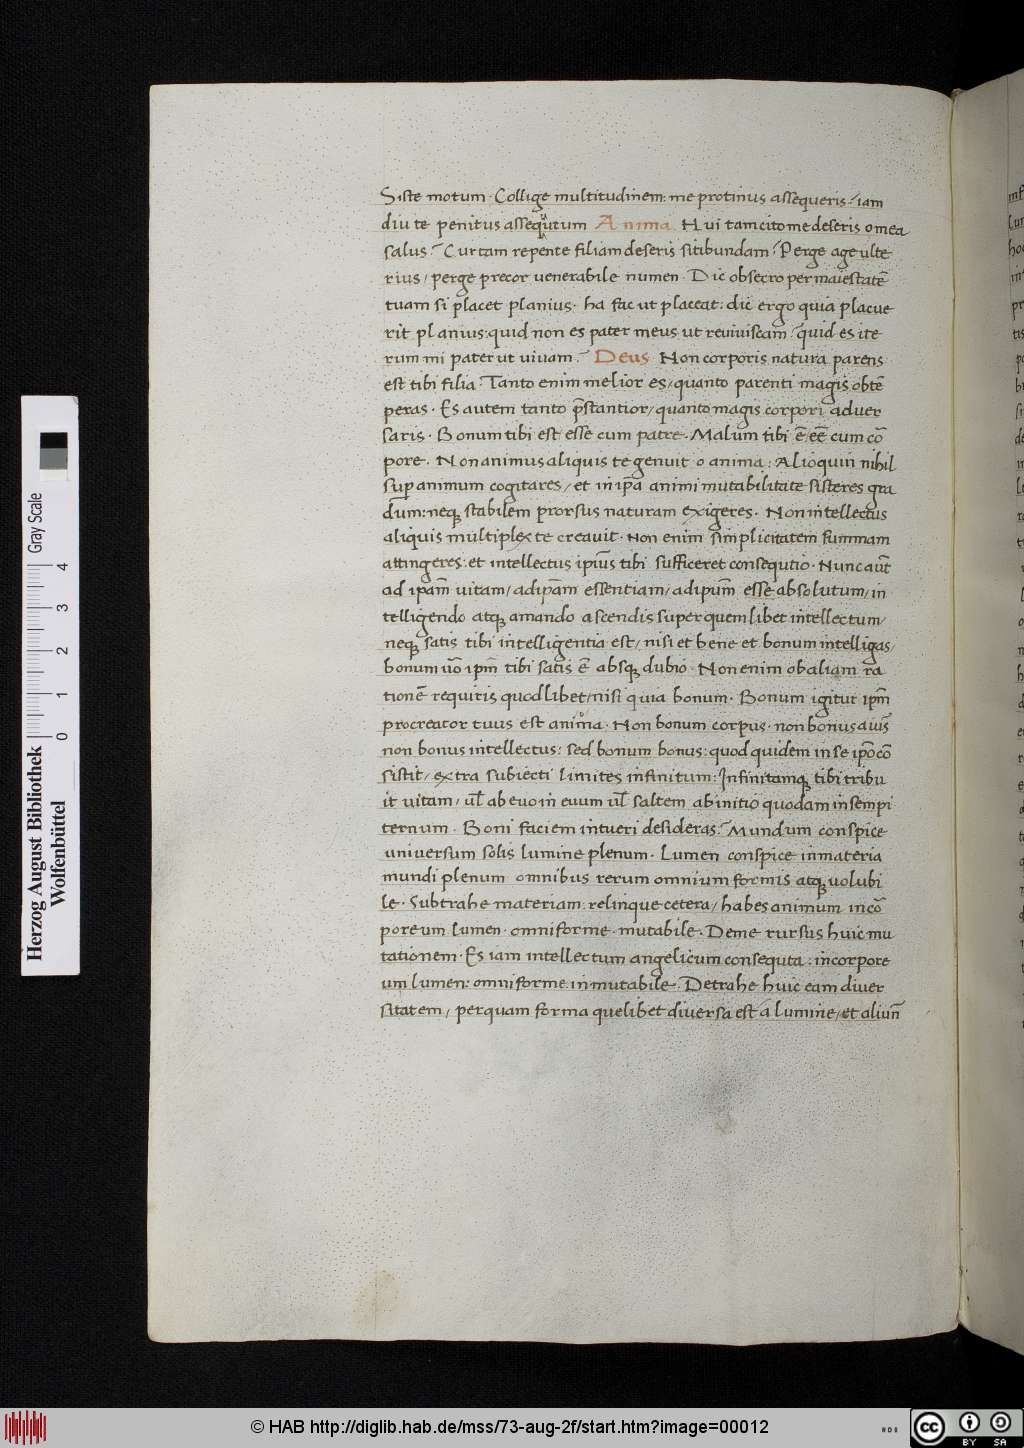 Siste motum · Collige multitudinem: me protinus assequeris: iam
diu te penitus assequutum Anima Hui tam cito me deseris o mea
salus? Cur tam repente filiam deseris sitibundam? Perge age ulte
rius / perge precor uenerabile numen · Dic obsecro per maiestatē
tuam si placet planius · ha fac ut placeat: dic ergo quia placue
rit planius: quid non es pater meus ut reuiuiscam? quid es ite
rum mi pater ut uiuam? Deus Non corporis natura parens
est tibi filia · Tanto enim melior es / quanto parenti magis obtē
peras · Es autem tanto p̄stantior / quanto magis corpori aduer
saris · Bonum tibi est esse cum patre · Malum tibi ē / eē cum cō
pore · Non animus aliquis te genuit o anima: Alioquin nihil
sup̄ animum cogitares / et in ip̄a animi mutabilitate sisteres gra
dum: neqꝫ stabilem prorsus naturam exigeres · Non intellectus
aliquis multiplex te creauit · Non enim simplicitatem summam
attingeres: et intellectus ipīus tibi sufficeret consequtio · Nunc aūt
ad ipam̄ uitam / ad ipam̄ essentiam / ad ipum̄ esse absolutum / in
telligendo atqꝫ amando ascendis super quemlibet intellectum /
neqꝫ satis tibi intelligentia est / nisi et bene et bonum intelligas /
bonum uō ipm̄ tibi satis ē absqꝫ dubio · Non enim ob aliam ra
tionē requiris quodlibet / nisi quia bonum · Bonum igitur ipm̄
procreator tuus est anima · Non bonum corpus · non bonus aīus
non bonus intellectus: sed bonum bonus: quod quidem in se ipō cō
sistit / extra subiecti limites infinitum: Infinitamqꝫ tibi tribu
it uitam / ul̄ ab euo in euum ul̄ saltem ab initio quodam in sempi
ternum · Boni faciem intueri desideras? Mundum conspice
uniuersum solis lumine plenum · Lumen conspice in materia
mundi plenum omnibus rerum omnium formis atqꝫ uolubi
le · Subtrahe materiam: relinque cetera / habes animum incō
poreum lumen · omniforme · mutabile · Deme rursus huic mu
tationem · Es iam intellectum angelicum consequta: incorpore
um lumen: omniforme: inmutabile · Detrahe huic eam diuer
sitatem / per quam forma quelibet diuersa est a lumine / et aliuñ
Herzog August Bibliothek
Wolfenbüttel
Gray Scale
0 1 2 3 4
© HAB http://diglib.hab.de/mss/73-aug-2f/start.htm?image=00012
CC BY SA